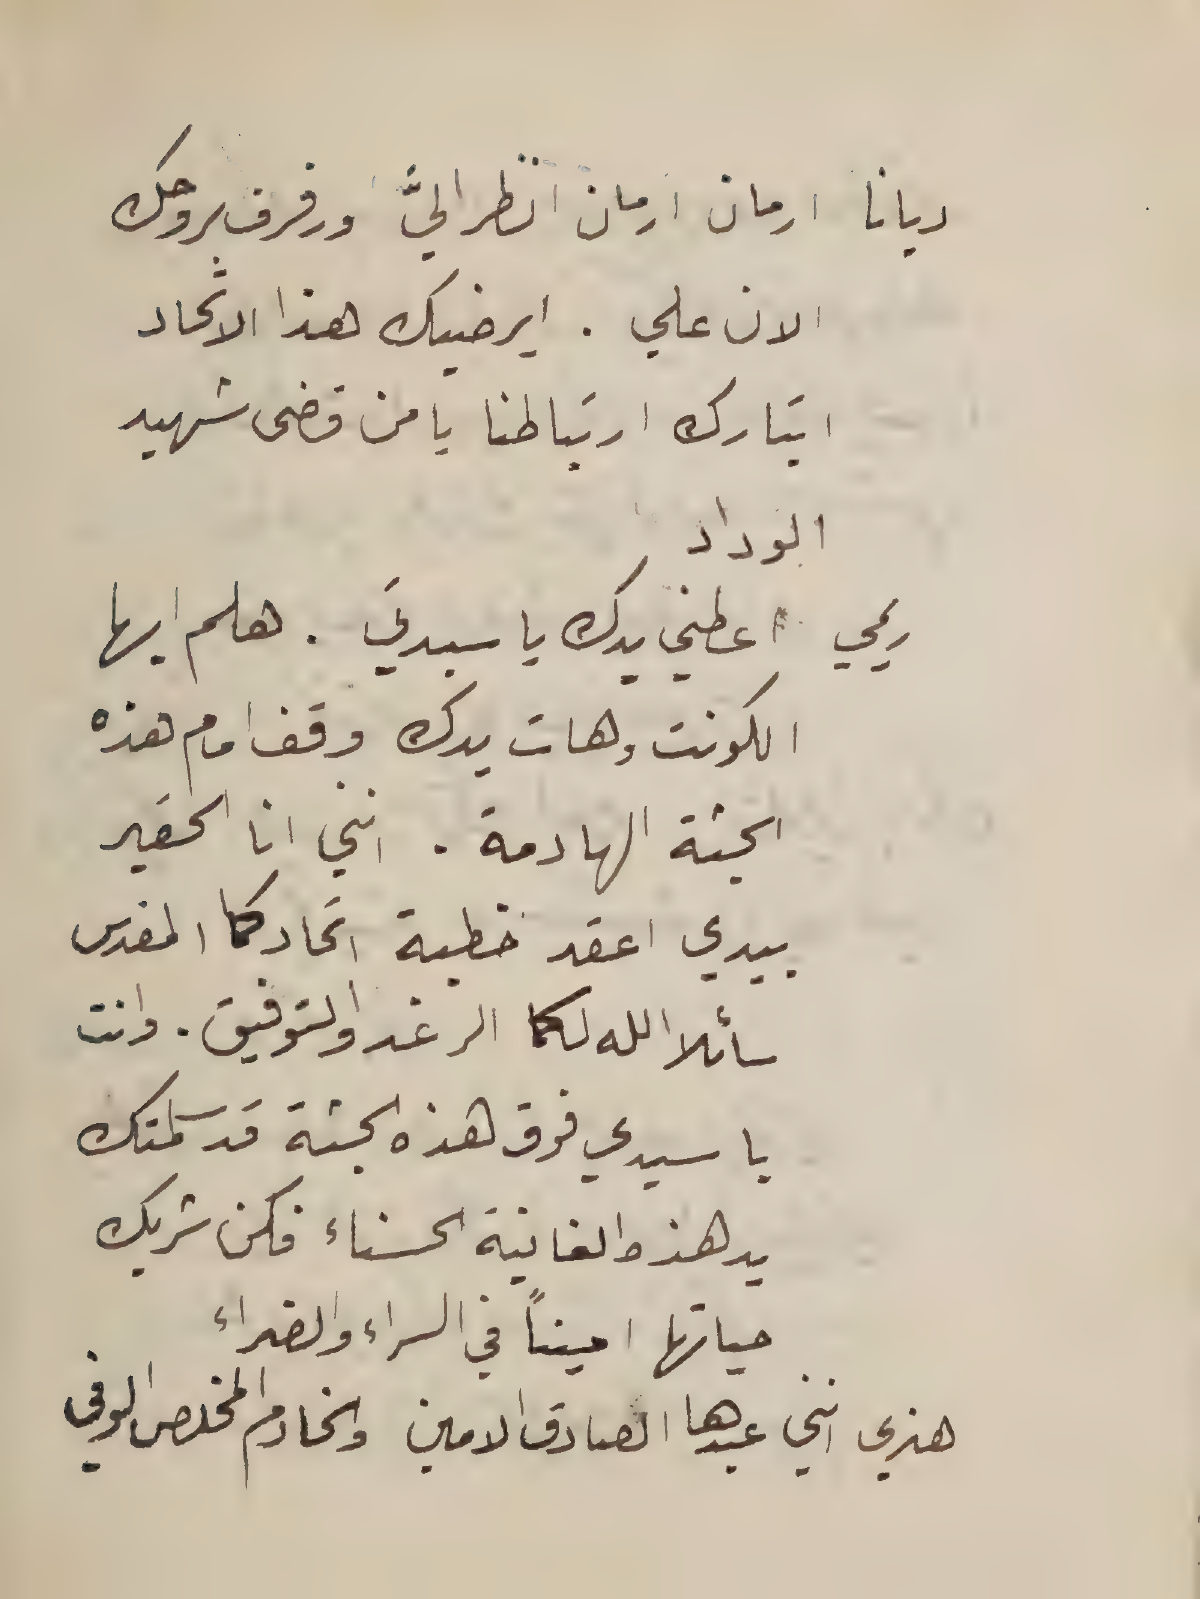 ديانا ارمان ارمان انظر اليَّ ورفرف بروحك
الان علي . ايرضيك هذا الاتحاد
اتبارك ارتباطنا يا من قضى شهيد
الوداد
ريمي اعطني يدك يا سيدتي . هلم ايها
الكونت وهات يدك وقف امام هذه
الجثة الهادمة . انني انا الحقير
بيدي اعقد خطبة اتحادكما المقدس
سائلا الله لكما الرغد والتوفيق . وانت
يا سيدي فوق هذه الجثة قد سلمتك
يد هذه الغانية الحسناء فكن شريك
حياتها اميناً في السراء والضراء
هنري انني عبدها الصادق الامين والخادم المخلص الوفي